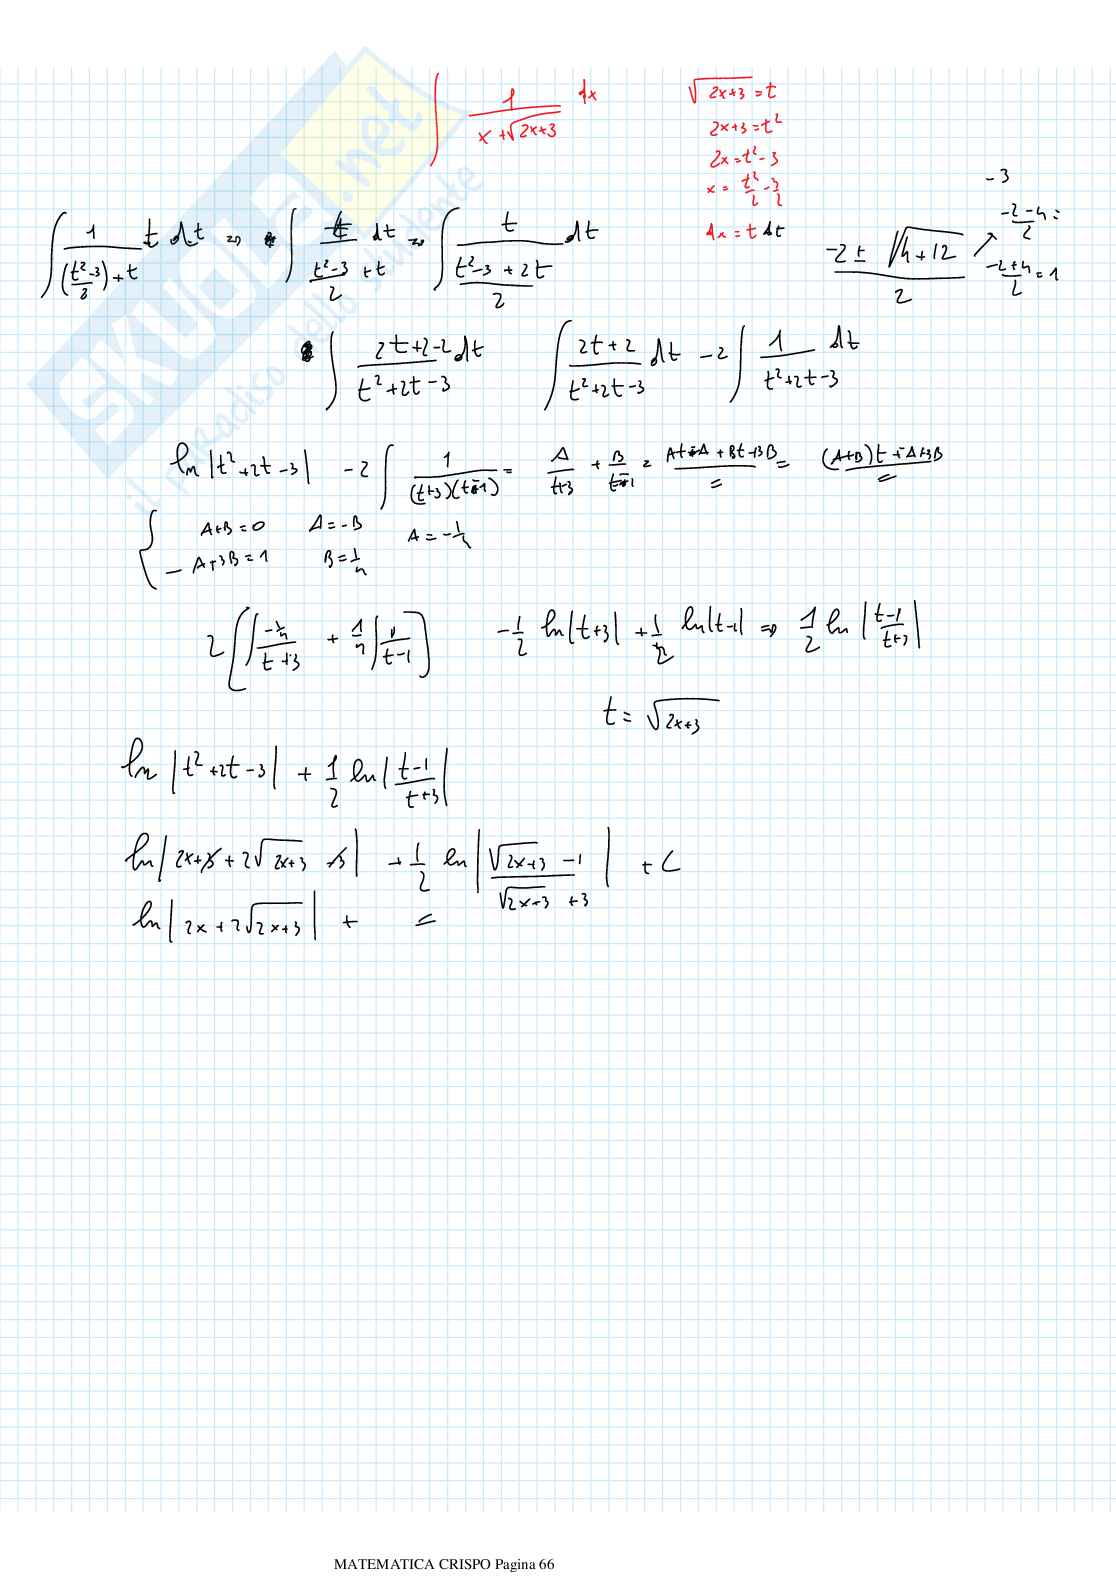 ∫ 1/(x+√(2x+3)) dx
√(2x+3) = t
2x+3 = t²
2x = t² - 3
x = t²/2 - 3/2
dx = t dt
∫ 1/((t²-3)/2)+t) t dt => ∫ t/((t²-3)/2 + t) dt => ∫ t/((t²-3+2t)/2) dt
(-2 ± √(4+12))/2
-3
(-2-4)/2 =
(-2+4)/2 = 1
∫ (2t+2-2)/(t²+2t-3) dt ∫ (2t+2)/(t²+2t-3) dt -2 ∫ 1/(t²+2t-3) dt
ln |t²+2t-3| -2 ∫ 1/((t+3)(t-1)) = A/(t+3) + B/(t-1) = (At-A+Bt+3B)/= = ((A+B)t-A+3B)/=
A+B=0 A=-B A=-1/4
-A+3B=1 B=1/4
2 [∫ (-1/4)/(t+3) + 1/4 ∫ 1/(t-1)] -1/2 ln|t+3| + 1/2 ln|t-1| => 1/2 ln |(t-1)/(t+3)|
t = √(2x+3)
ln |t²+2t-3| + 1/2 ln |(t-1)/(t+3)|
ln |2x+3+2√(2x+3) -3| + 1/2 ln |(√(2x+3) -1)/(√(2x+3) +3)| + C
ln |2x+2√(2x+3)| + =
SKUOLA.net
il paradiso dello studente
MATEMATICA CRISPO Pagina 66